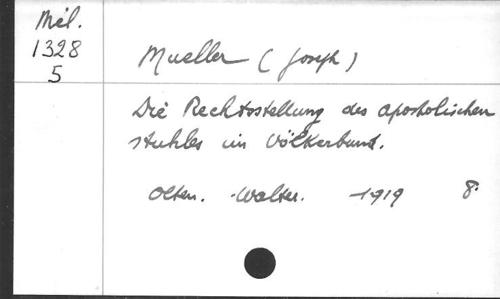 Mél.
1328
5
Mueller (Joseph)
Die Rechtsstellung des apostolischen
stuhles im Völkerbund.
Olten. Walter. 1919 8°